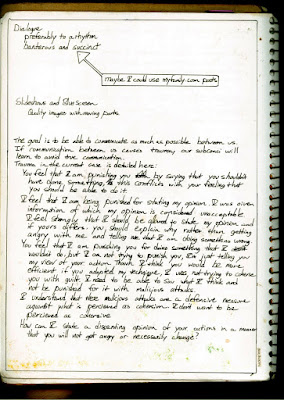 Dialogue
preferably to a rhythm
banterous and succinct
maybe I could use myfamily.com posts
Slideshows and Silverscreen
Quality images with moving parts
The goal is to be able to communicate as much as possible between us.
If communication between us causes trauma, our subconsci will
learn to avoid true communication.
Trauma in the current case is detailed here:
You feel that I am punishing you by saying that you shouldn't
have done something, this conflicts with your feeling that
you should be able to do it.
I feel that I am being punished for stating my opinion. I was given
information of which my opinion is considered unacceptable
I feel strongly that I should be allowed to state my opinion, and
if yours differs you should explain why rather than getting
angry with me and telling me that I am doing something wrong
You feel that I am punishing you for doing something that I
wouldn't do but I am not trying to punish you, I'm just telling you
my view of your action. Thank I think you would be more
efficient if you adopted my technique, I was not trying to
you with guilt I need to be able to say what I think and
not be punished for it with malicious attacks.
I understand that these malicious attacks are a defensive measure
against what is percieved as cohersion. I don't want to be
percieved as cohersive
How can I state a dissenting opinion of your actions in a manner
that you will not get angry or necessarily change?